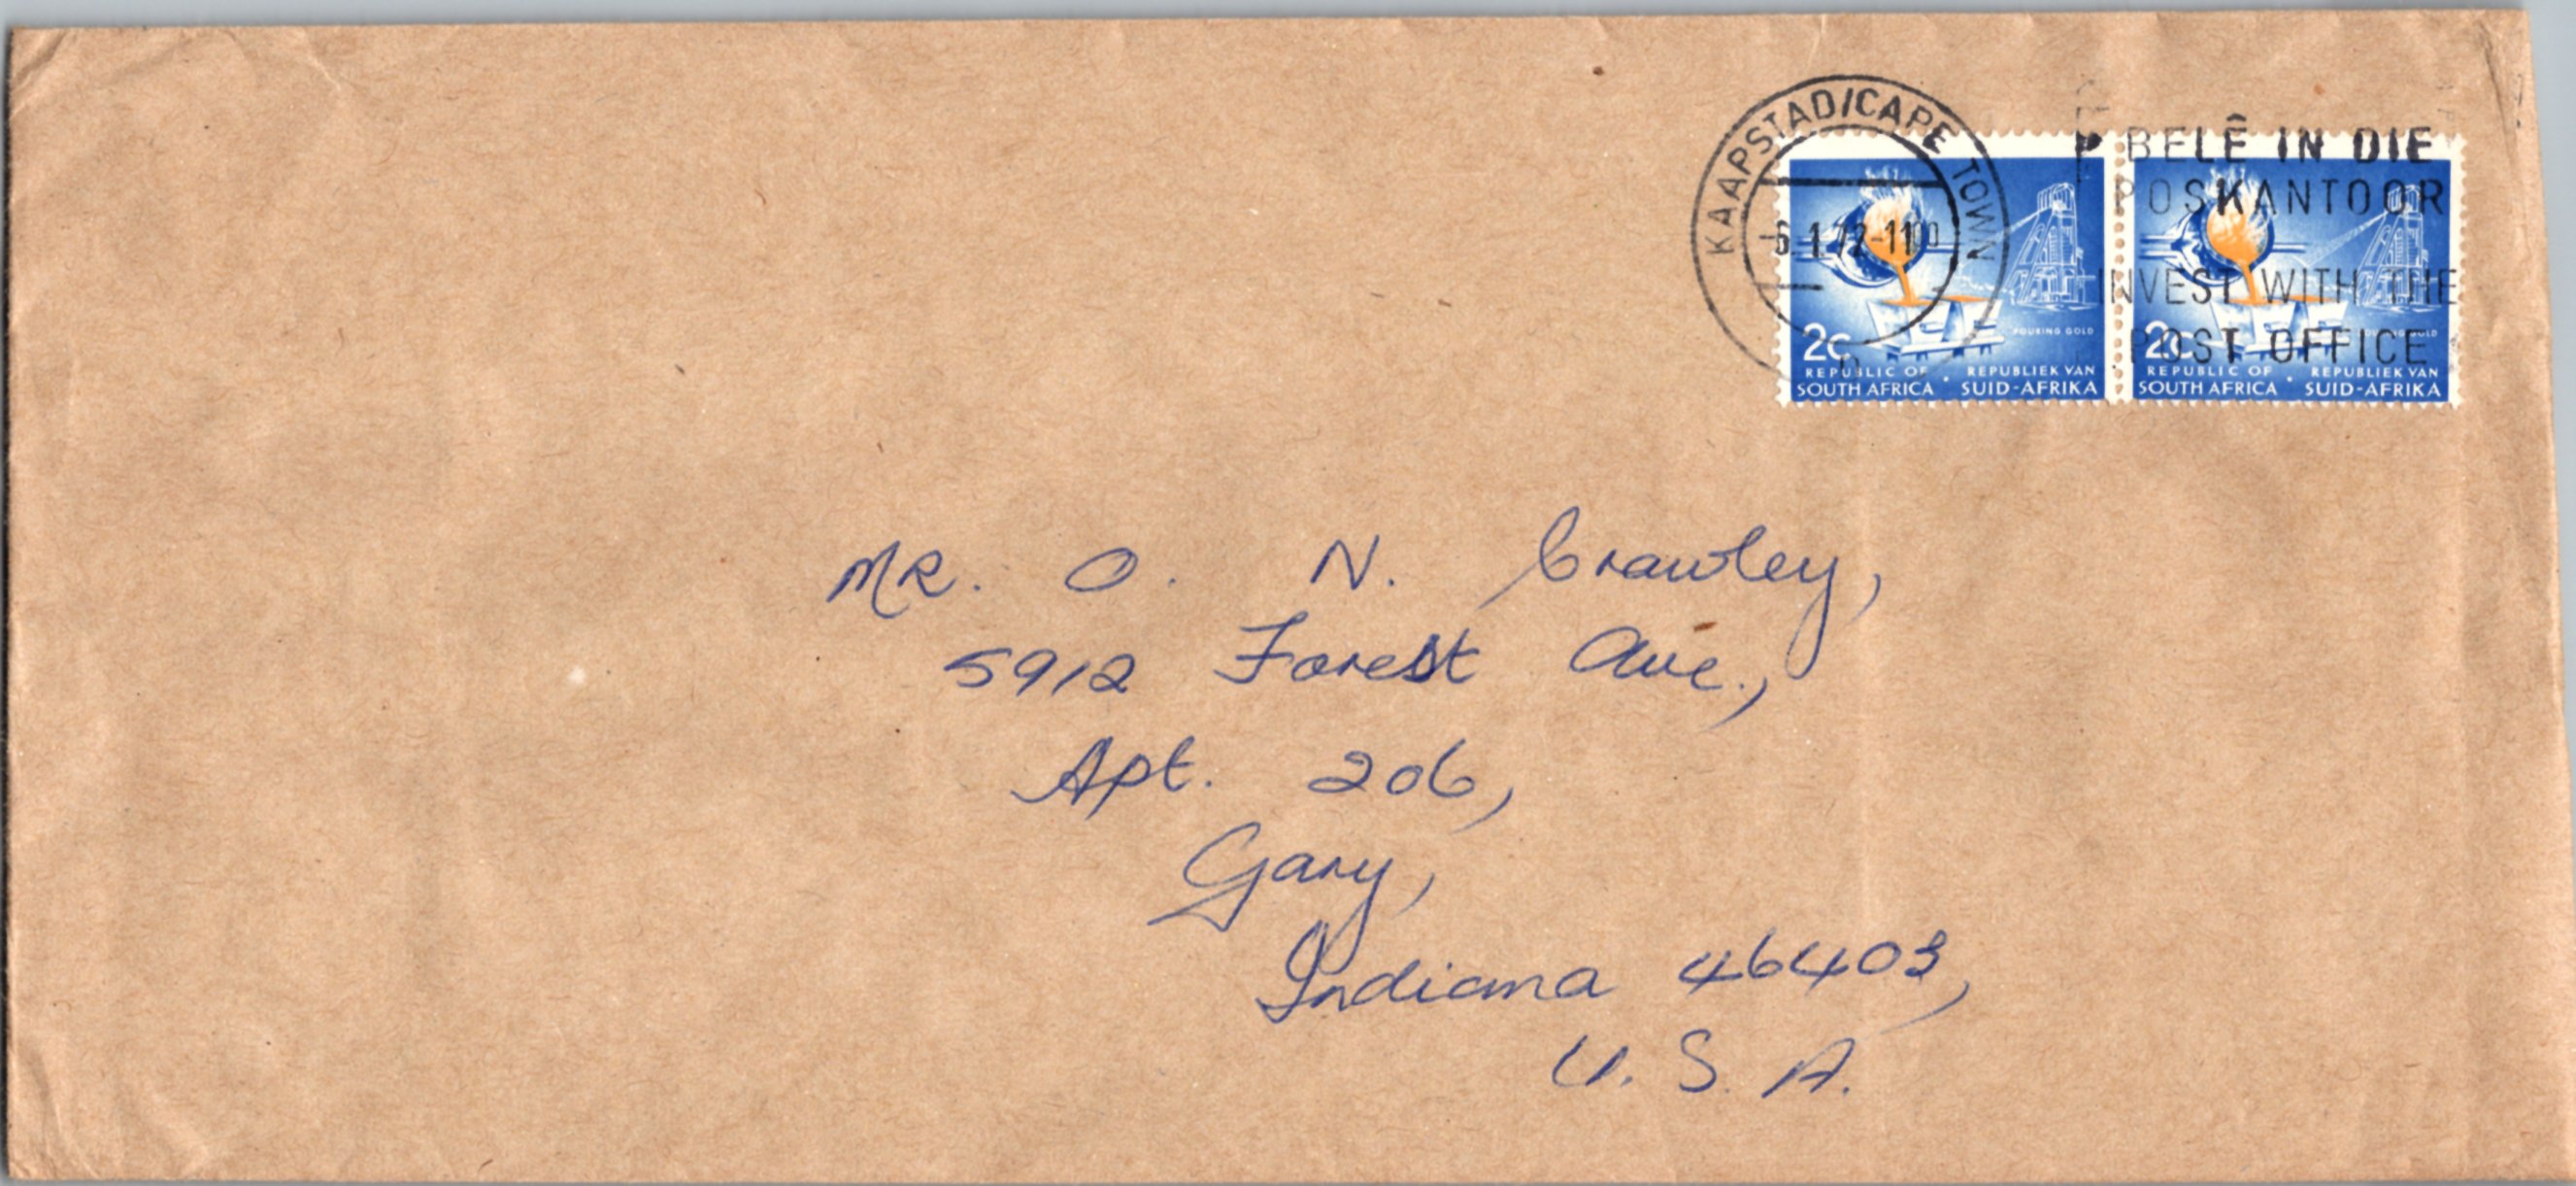 KAAPSTAD/CAPE TOWN
-6.1.72-1100
BELÊ IN DIE
POSKANTOOR
INVEST WITH THE
POST OFFICE
POURING GOLD
2c
REPUBLIC OF SOUTH AFRICA · REPUBLIEK VAN SUID-AFRIKA
POURING GOLD
2c
REPUBLIC OF SOUTH AFRICA · REPUBLIEK VAN SUID-AFRIKA
MR. O. N. Crawley,
5912 Forest Ave.,
Apt. 206,
Gary,
Indiana 46403,
U. S. A.